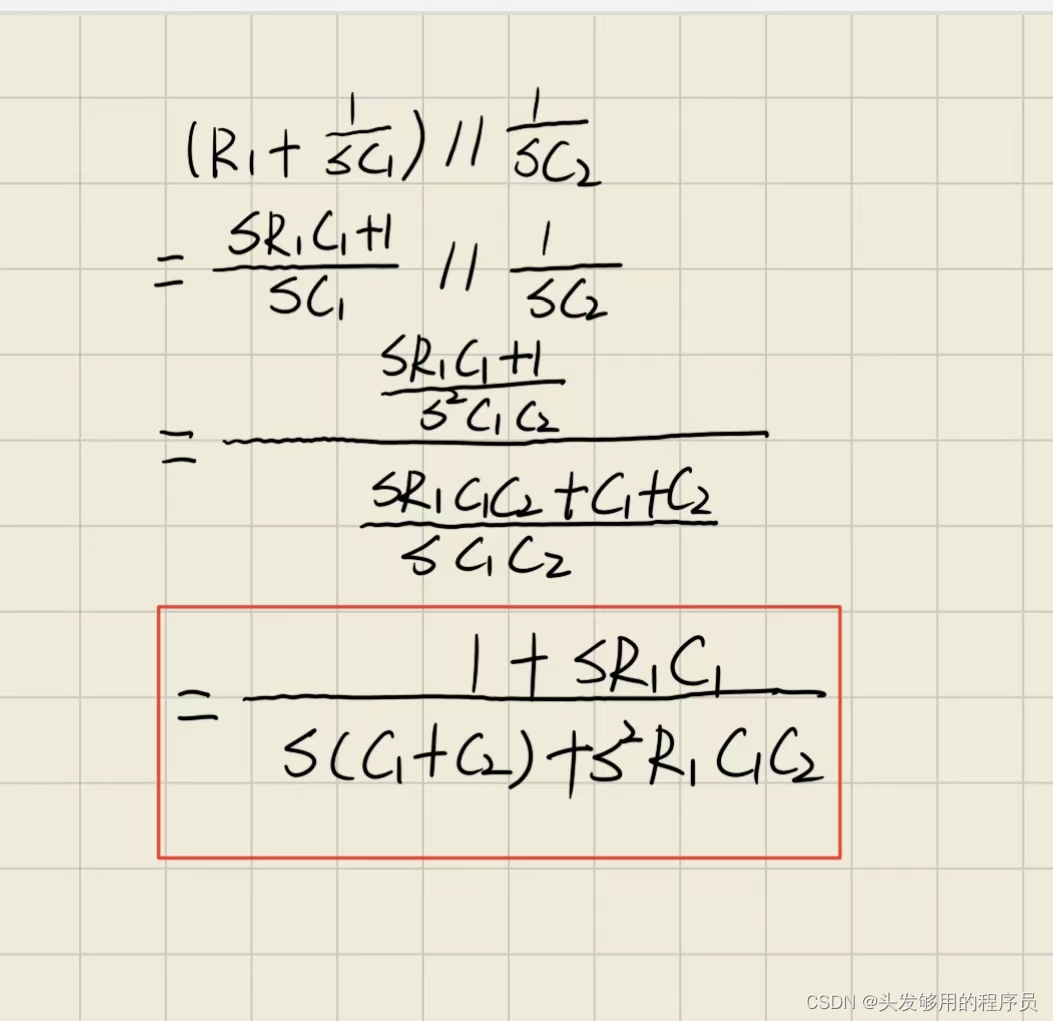 (R₁ + 1/SC₁) // 1/SC₂
= (SR₁C₁+1)/(SC₁) // 1/(SC₂)
= ((SR₁C₁+1)/(S²C₁C₂)) / ((SR₁C₁C₂+C₁+C₂)/(SC₁C₂))
= (1 + SR₁C₁)/(S(C₁+C₂)+S²R₁C₁C₂)
CSDN @头发够用的程序员